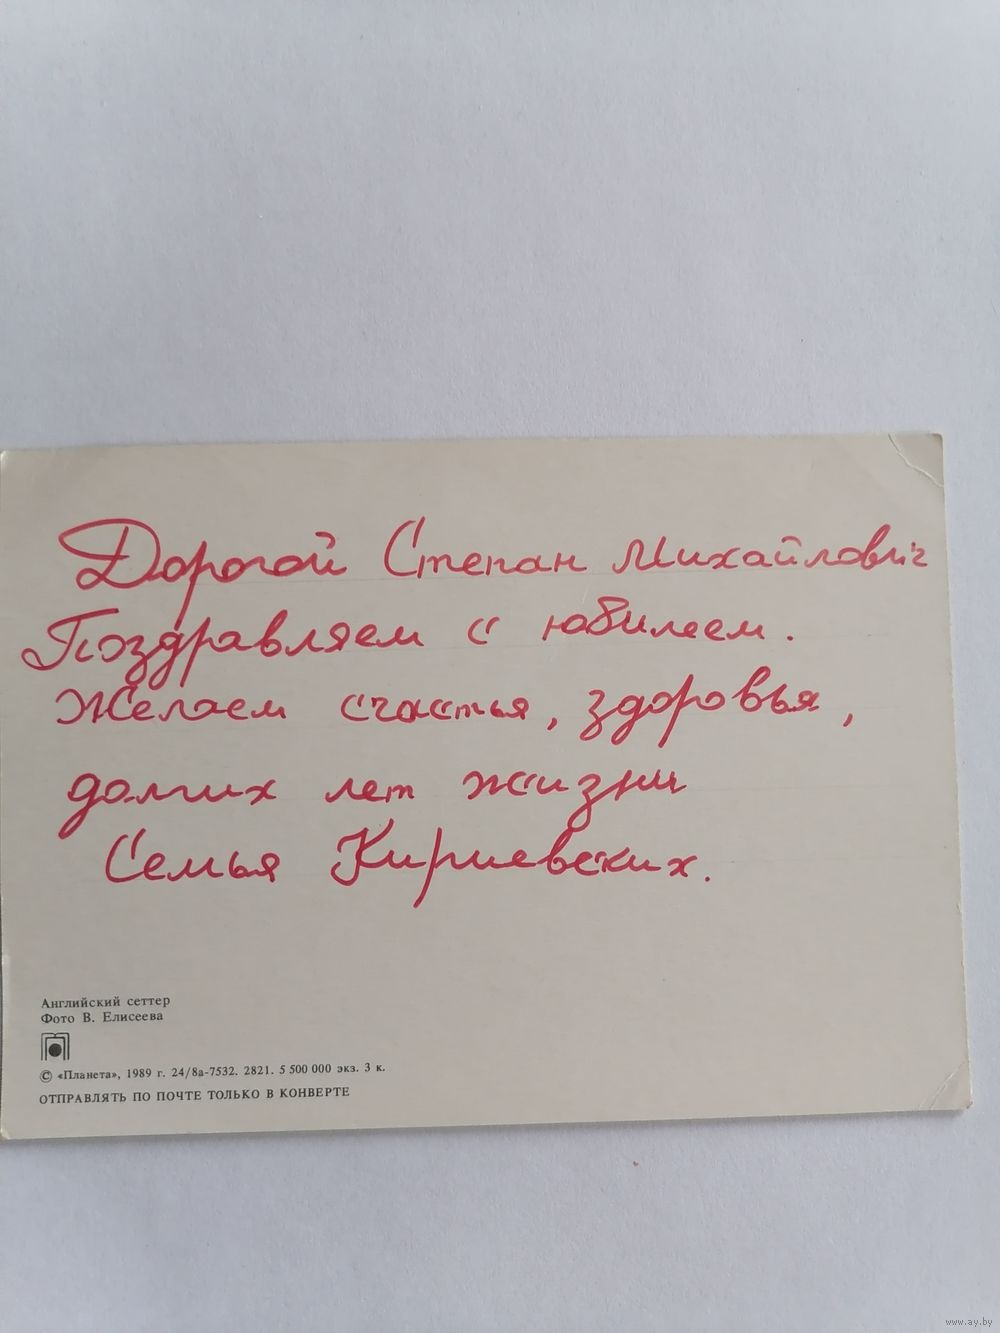 Дорогой Степан Михайлович
Поздравляем с юбилеем.
Желаем счастья, здоровья,
долгих лет жизни
Семья Кириевских.
Английский сеттер
Фото В. Елисеева
© «Планета», 1989 г. 24/8а-7532. 2821. 5 500 000 экз. 3 к.
ОТПРАВЛЯТЬ ПО ПОЧТЕ ТОЛЬКО В КОНВЕРТЕ
www.ay.by